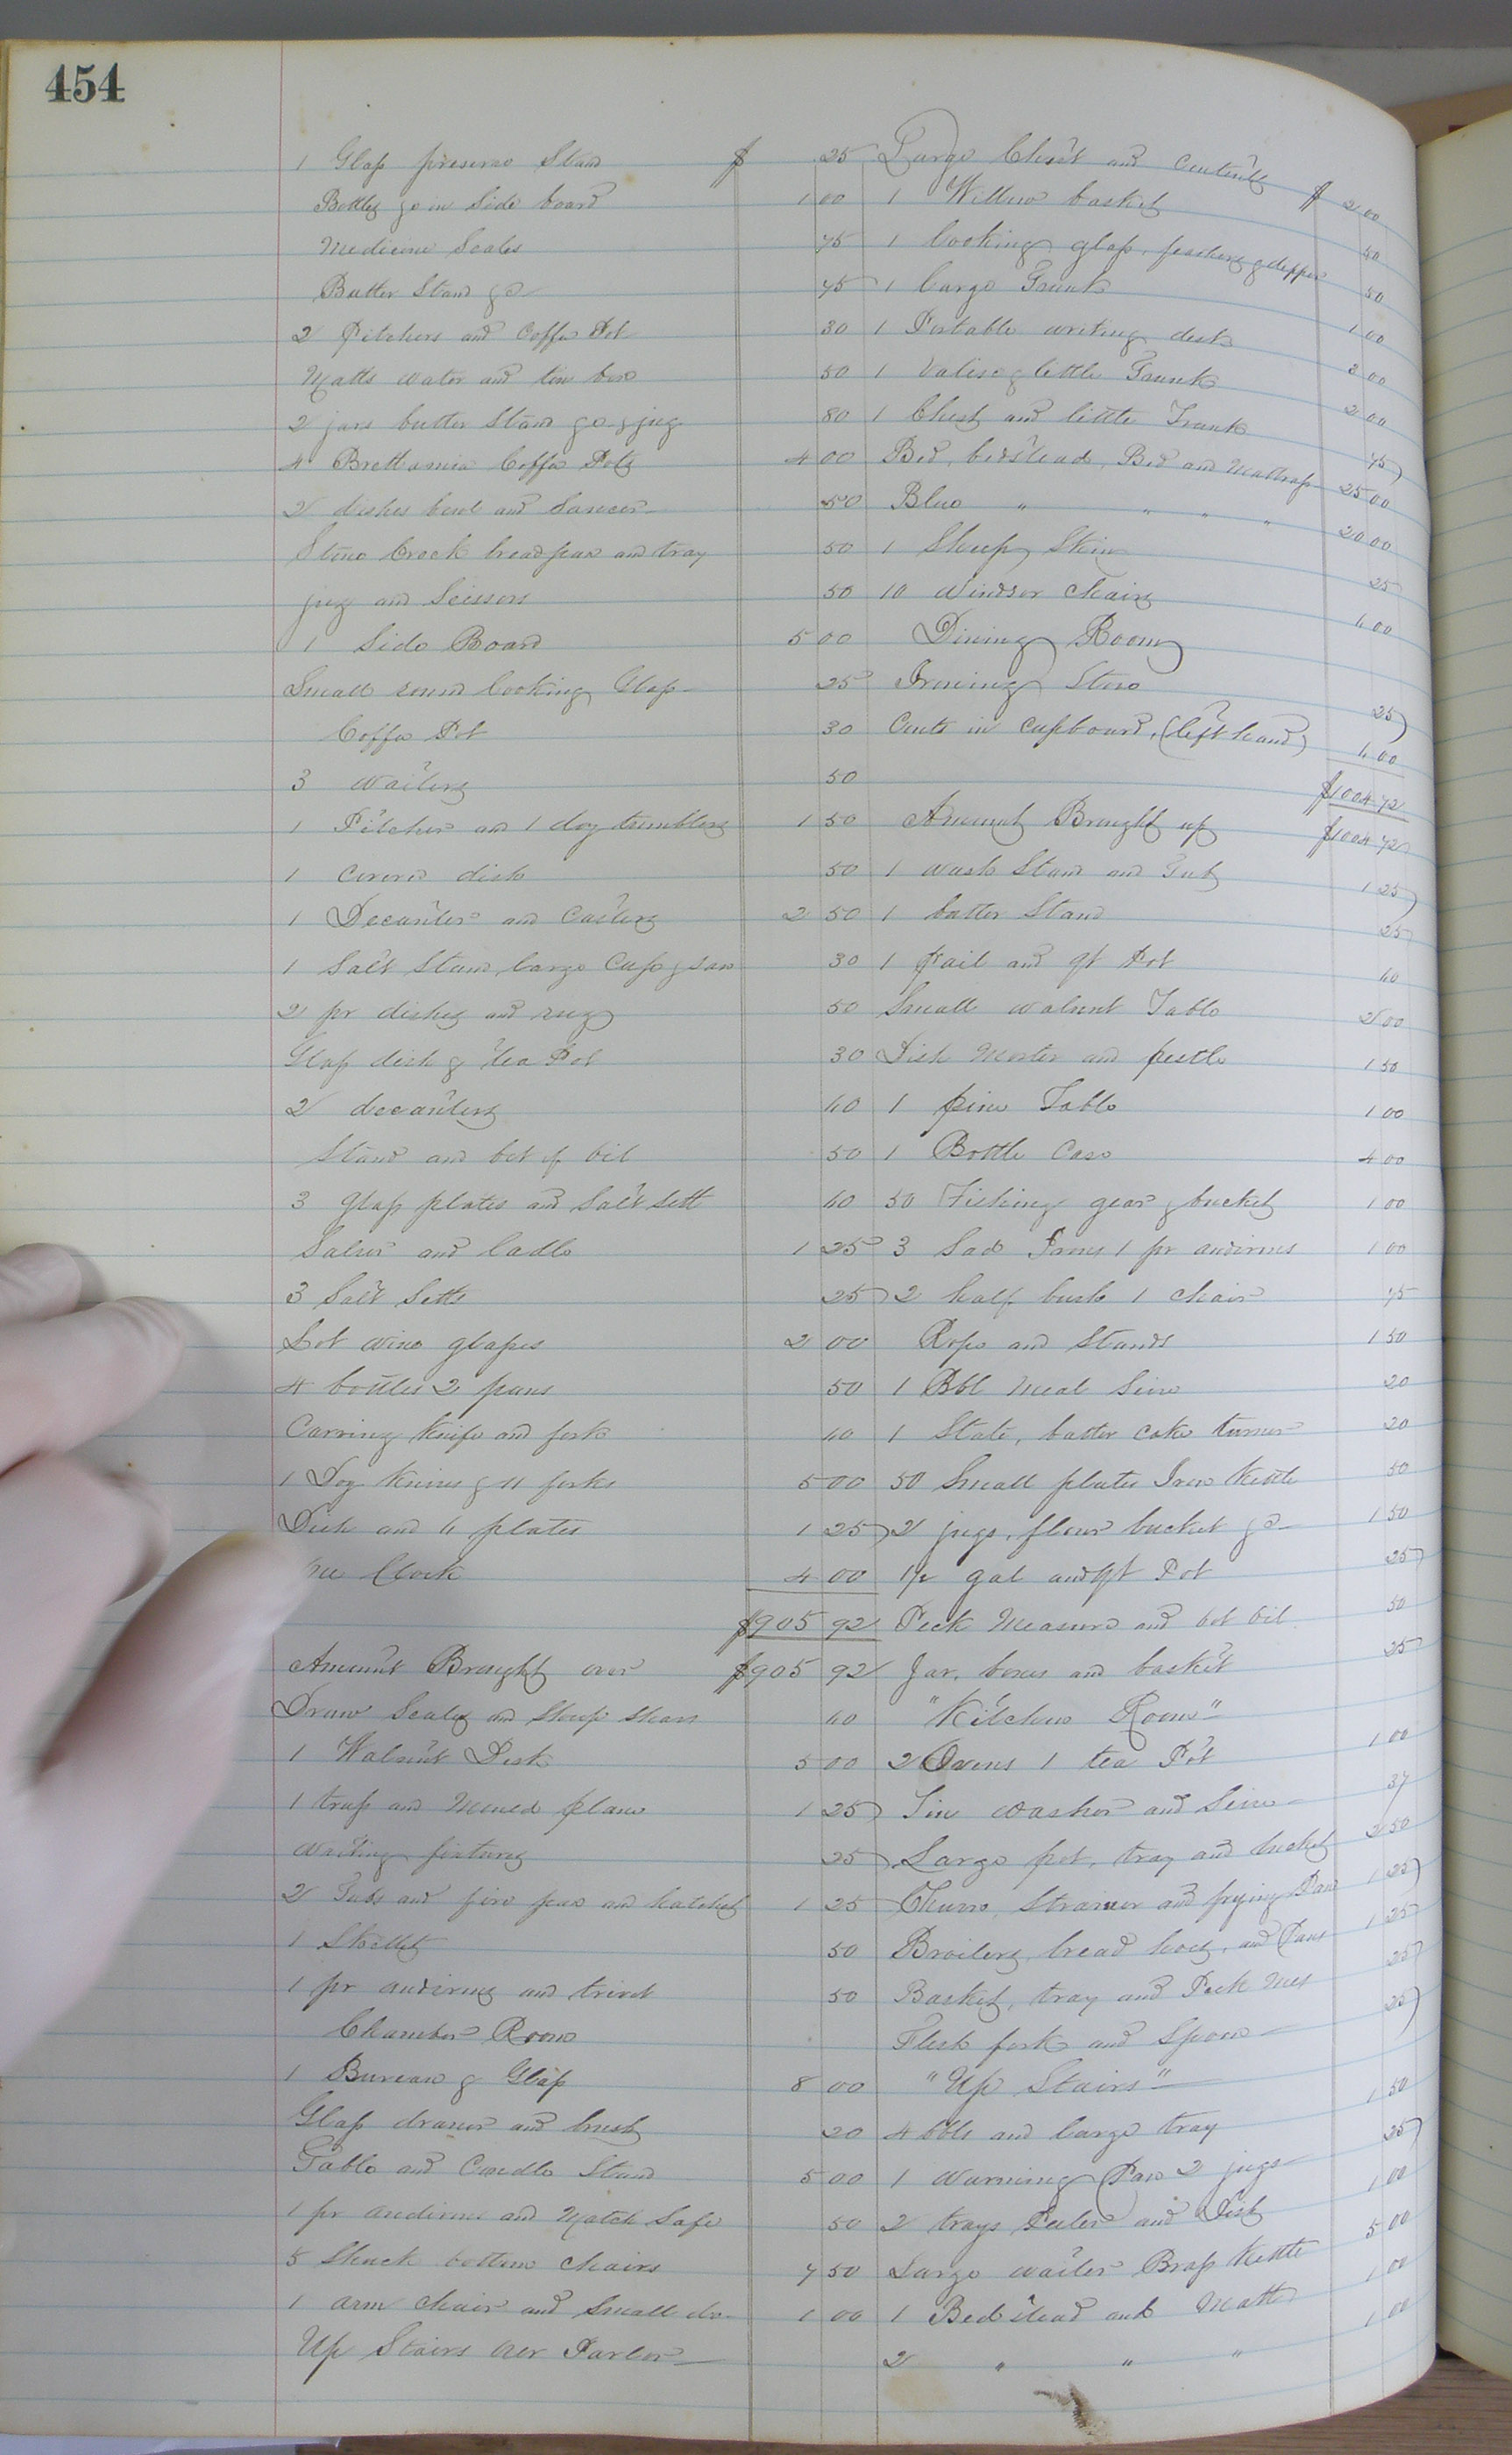 454
1 Glass preserve Stand $ 25
Bottles &c in Side board 1 00
Medicine Scales 75
Butter Stand &c 75
2 Pitchers and Coffee Pot 30
Matts water and tin box 50
2 jars butter Stand &c & jug 80
4 Brettannia Coffee Pots 4 00
2 dishes bowl and Saucer 50
Stone Crock bread pan and tray 50
jug and Scissors 50
1 Side Board 5 00
Small round looking Glass 25
Coffee Pot 30
3 waiters 50
1 Pitcher and 1 doz tumblers 1 50
1 Covered dish 50
1 Decanter and Casters 2 50
1 Salt Stand, large Cup & 30
2 pr dishes and 50
Glass dish & tea Pot 30
2 decanters 40
Stand and bot of oil 50
3 glass plates and Salt Sett 40
Salver and ladle 1 25
3 Salt Setts 25
Lot wine glasses 2 00
4 bottles 2 pans 50
Carving Knife and fork 40
1 Doz Knives & 11 forks 5 00
Dish and 4 plates 1 25
Clock 4 00
$905 92
Amount Brought over $905 92
Draw Scales and Sheep Shears 40
1 Walnut Desk 5 00
1 and plane 1 25
fixtures 25
2 Tubs and fire pan and hatchet 1 25
1 Skillet 50
1 pr andirons and trivet 50
Chamber Room
1 Bureau & Glass 8 00
Glass drawer and brush 20
Table and Candle Stand 5 00
1 pr andirons and Match Safe 50
5 Shuck bottom Chairs 7 50
1 arm chair and Small do 1 00
Up Stairs over Parlor
Large Chest and Contents $ 2 00
1 Willow basket 50
1 looking glass, feathers & dipper 50
1 large Trunk 1 00
1 Portable writing desk 3 00
1 Valise & little Trunk 2 00
1 Chest and little Trunk 75
Bed, bedstead, Bed and Mattrass 25 00
Blue " " " " 20 00
1 Sheep Skin 25
10 Windsor Chairs 4 00
Dining Room
Ironing Stove 25
Conts in Cupboard, (left hand) 4 00
$1004 72
Amount Brought up $1004 72
1 wash Stand and Tub 1 25
1 batter Stand 25
1 Pail and qt Pot 40
Small walnut Table 2 00
Dish Morter and pestle 1 50
1 pine Table 1 00
1 Bottle Case 4 00
50 Fishing gear & bucket 1 00
3 Sad Irons 1 pr andirons 1 00
2 half bush 1 chair 75
Rope and Stands 1 50
1 Bbl Meal Sieve 20
1 Slate, batter cake turner 20
50 Small plates Iron Kettle 50
2 jugs, flour bucket &c 1 50
1/2 gal and qt Pot 25
Peck Measure and bot oil 50
Jar, boxes and basket 25
"Kitchen Room"
2 Ovens 1 tea Pot 1 00
Tin washer and Sieve 37
Large pot, tray and bucket 2 50
Churn, Strainer and frying Pan 1 25
Broilers, bread hoes, and Pans 1 25
Basket, tray and Peck Mes 25
Flesh fork and Spoon 25
"Up Stairs"
4 bbls and large tray 1 50
1 Warming Pan 2 jugs 25
2 trays and 1 00
Large waiter Brass Kettle 5 00
1 Bedstead and Matt 1 00
2 " " " 1 00